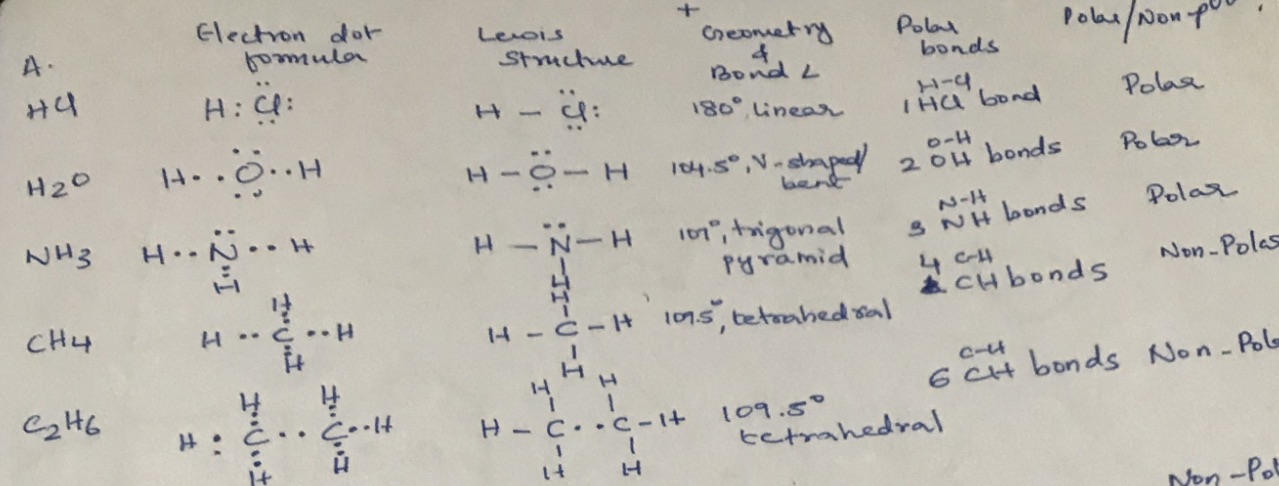 A. Electron dot formula Lewis Structure + Geometry & Bond ∠ Polar bonds Polar/Non-p
HCl H:Cl: H – Cl: 180°, linear H-Cl 1 HCl bond Polar
H2O H··O··H H – O – H 104.5°, V-shaped/ bent O-H 2 OH bonds Polar
NH3 H··N··H H H – N – H H 107°, trigonal pyramid N-H 3 NH bonds Polar
CH4 H H··C··H H H H – C – H H 109.5°, tetrahedral 4 C-H CH bonds Non-Polar
C2H6 H H H:C··C··H H H H H H – C··C – H H H 109.5° tetrahedral C-H 6 CH bonds Non-Pola
Non-Pol